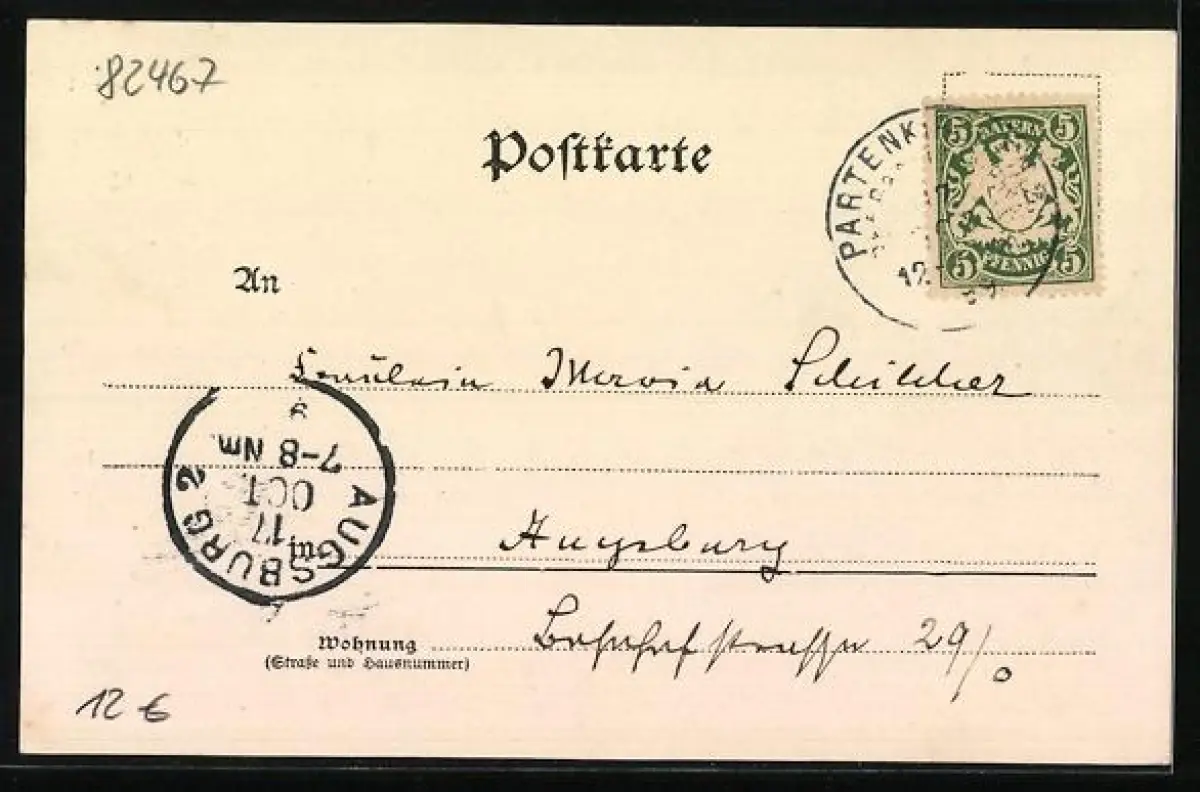 82467
Postkarte
PARTENK
5 BAYERN 5
5 PFENNIG 5
12.
An
Fräulein Maria Schilcher
AUGSBURG 2
17
OCT
7-8 Nm
in
Augsburg
Bahnhofstrasse 29/0
Wohnung
(Straße und Hausnummer)
12 €